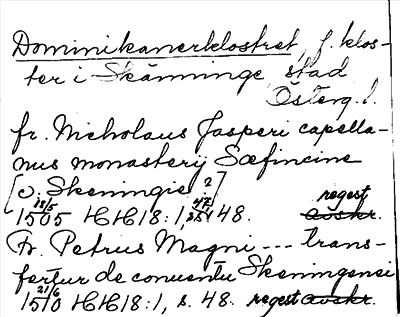 Dominikanerklostret, f. klos-
ter i Skänninge stad
Österg. l.
fr. Nicholaus Jasperi capella-
nus monasterij Sæfincine
[o: Skeningie?]
18/5 47, regest
1505 HH 18:1, 48. avskr.
Fr. Petrus Magni --- trans-
fertur de conventu Skeningensi
21/6
1510 HH 18:1, s. 48. regest avskr.